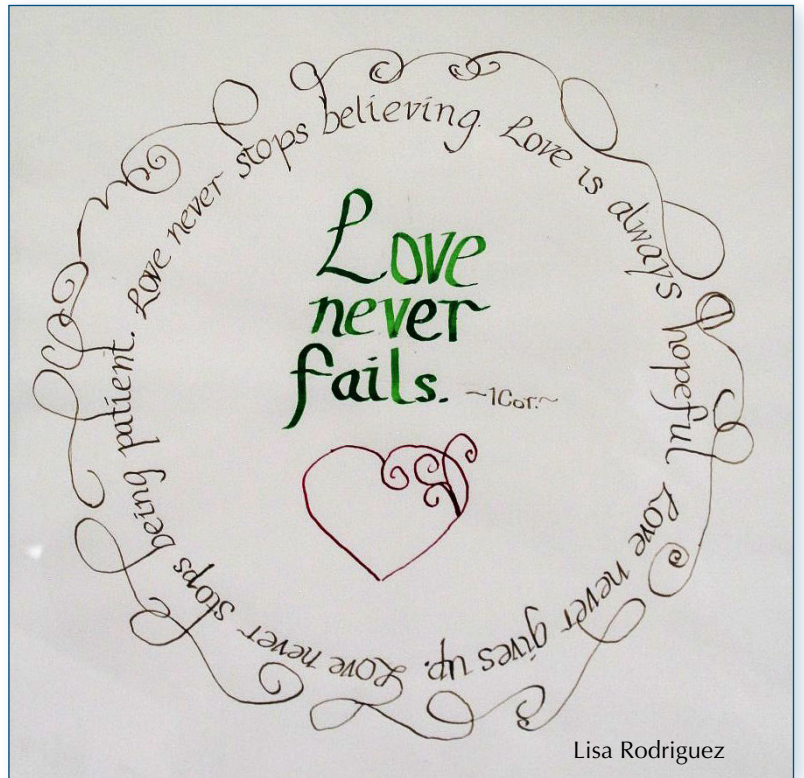 Love never stops believing. Love is always hopeful Love never gives up. Love never stops being patient.
Love
never
fails. ~1Cor.~
Lisa Rodriguez